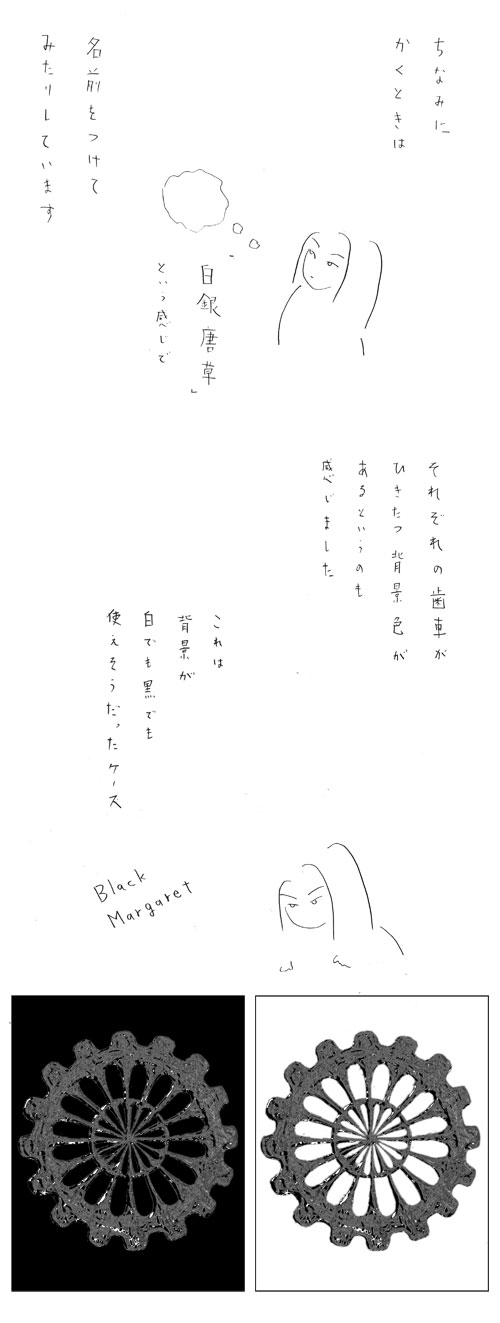 ちなみに
かくときは
名前をつけて
みたりしています
白銀唐草」
という感じで
それぞれの歯車が
ひきたつ背景色が
あるというのも
感じました
これは
背景が
白でも黒でも
使えそうだったケース
Black
Margaret